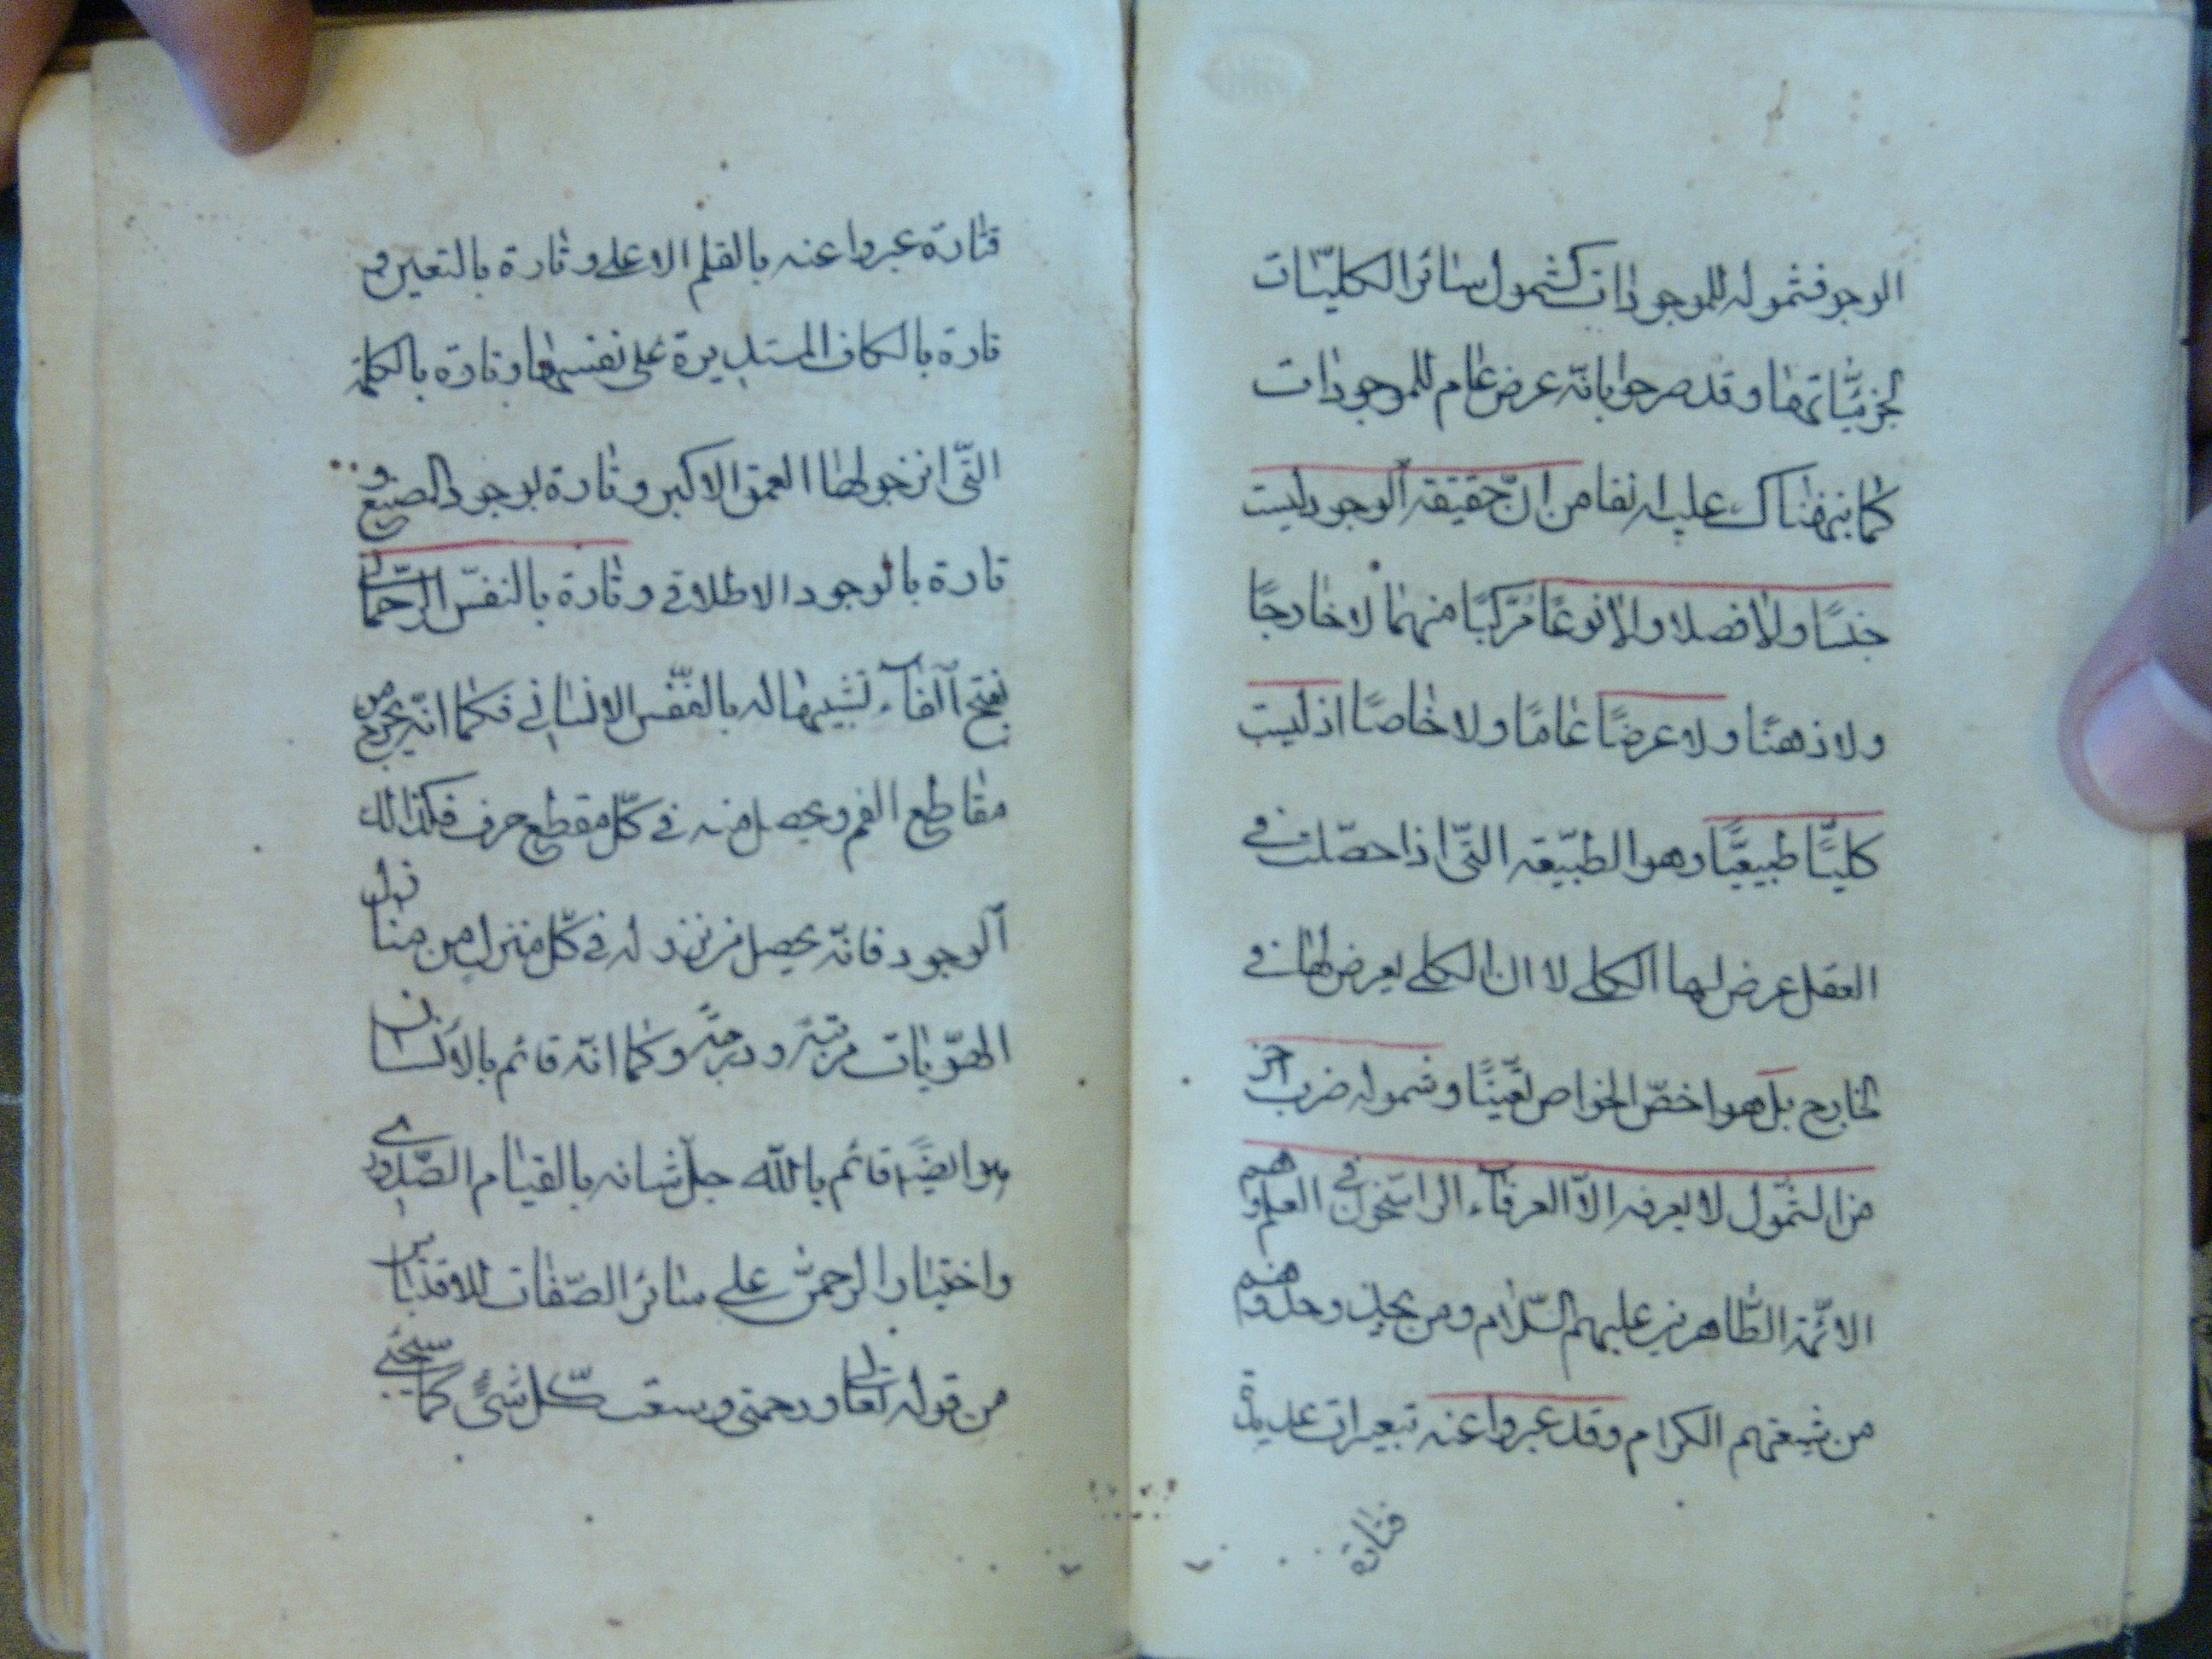 الوجو فشموله للموجودات كشمول سائر الكليّات
لجزئيّاتها وقد صرحوا بانّه عرض عام للموجودات
كما نبهناك عليه انفا من انّ حقيقة الوجود ليست
جنسًا ولا فصلا ولا نوعًا مركبًا منهما لا خارجًا
ولا ذهنًا ولا عرضًا عامًا ولا خاصًا اذ ليست
كليًّا طبيعيًّا وهو الطبيّعة التّى اذا حصّلت فى
العقل عرض لها الكلى لا ان الكلى يعرض لها فى
الخارج بل هو اخصّ الخواص تعيّنًا وشموله ضرب اخر
من الشّمول لا يعرفه الاّ العرفاء الراسّخون فى العلم وهم
الائمّة الطّاهرين عليهم السّلام ومن يحذو حذوهم
من شيعتهم الكرام وقد عبروا عنه تبعيرات عديدة
فتارة
فتارة عبروا عنه بالقلم الاعلى وتارة بالتعين و
تارة بالكاف المستديرة على نفسها وتارة بالكلمة
التّى انزجر لها العمق الاكبر وتارة بوجود الصبغ و
تارة بالوجود الاطلاقى وتارة بالنفسّ الرّحمانى
بفتح الفاء تشبيها له بالنّفس الانسانى فكما انّه يخرج من
مقاطع الفم ويحصل منه فى كلّ مقطع حرف فكذالك
الوجود فانّه يحصل من نزوله فى كلّ منزل من منازل
الهوّيات مرتبة ودرجة وكما انّه قائم بالانسان
هو ايضًا قائم بالله جلّ شانه بالقيام الصّدورى
واختيار الرحمن على سائر الصّفات للاقتباس
من قوله تعالى ورحمتى وسعت كلّ شئ كما سيجئ